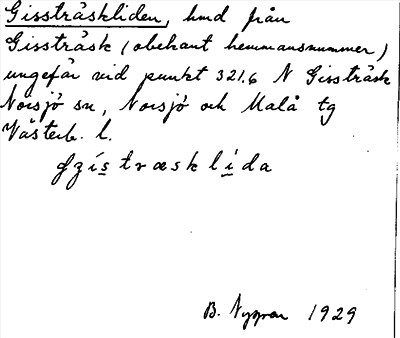 Gissträskliden, hmd från
Gissträsk (obekant hemmansnummer)
ungefär vid punkt 321.6 N Gissträsk
Norsjö sn, Norsjö och Malå tg
Västerb. l.
gzístræsklída
B. 1929